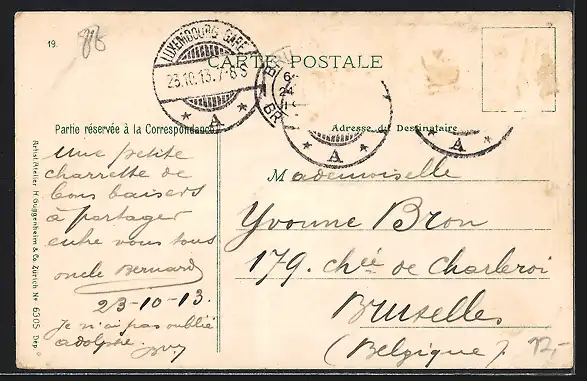 19.
88
LUXEMBOURG-GARE
23.10.13.7-8S
* A *
CARTE POSTALE
6
24
* A *
* A *
Partie réservée à la Correspondance
Adresse du Destinataire
Une petite
charrette de
bons baisers
à partager
entre vous tous
oncle Bernard
23-10-13.
Je n'ai pas oublié
adolphe.
Mademoiselle
Yvonne Bron
179. chée de Charleroi
Bruxelles
(Belgique).
12,-
Artist. Atelier H. Guggenheim & Co. Zürich Nr. 6305 Dep.